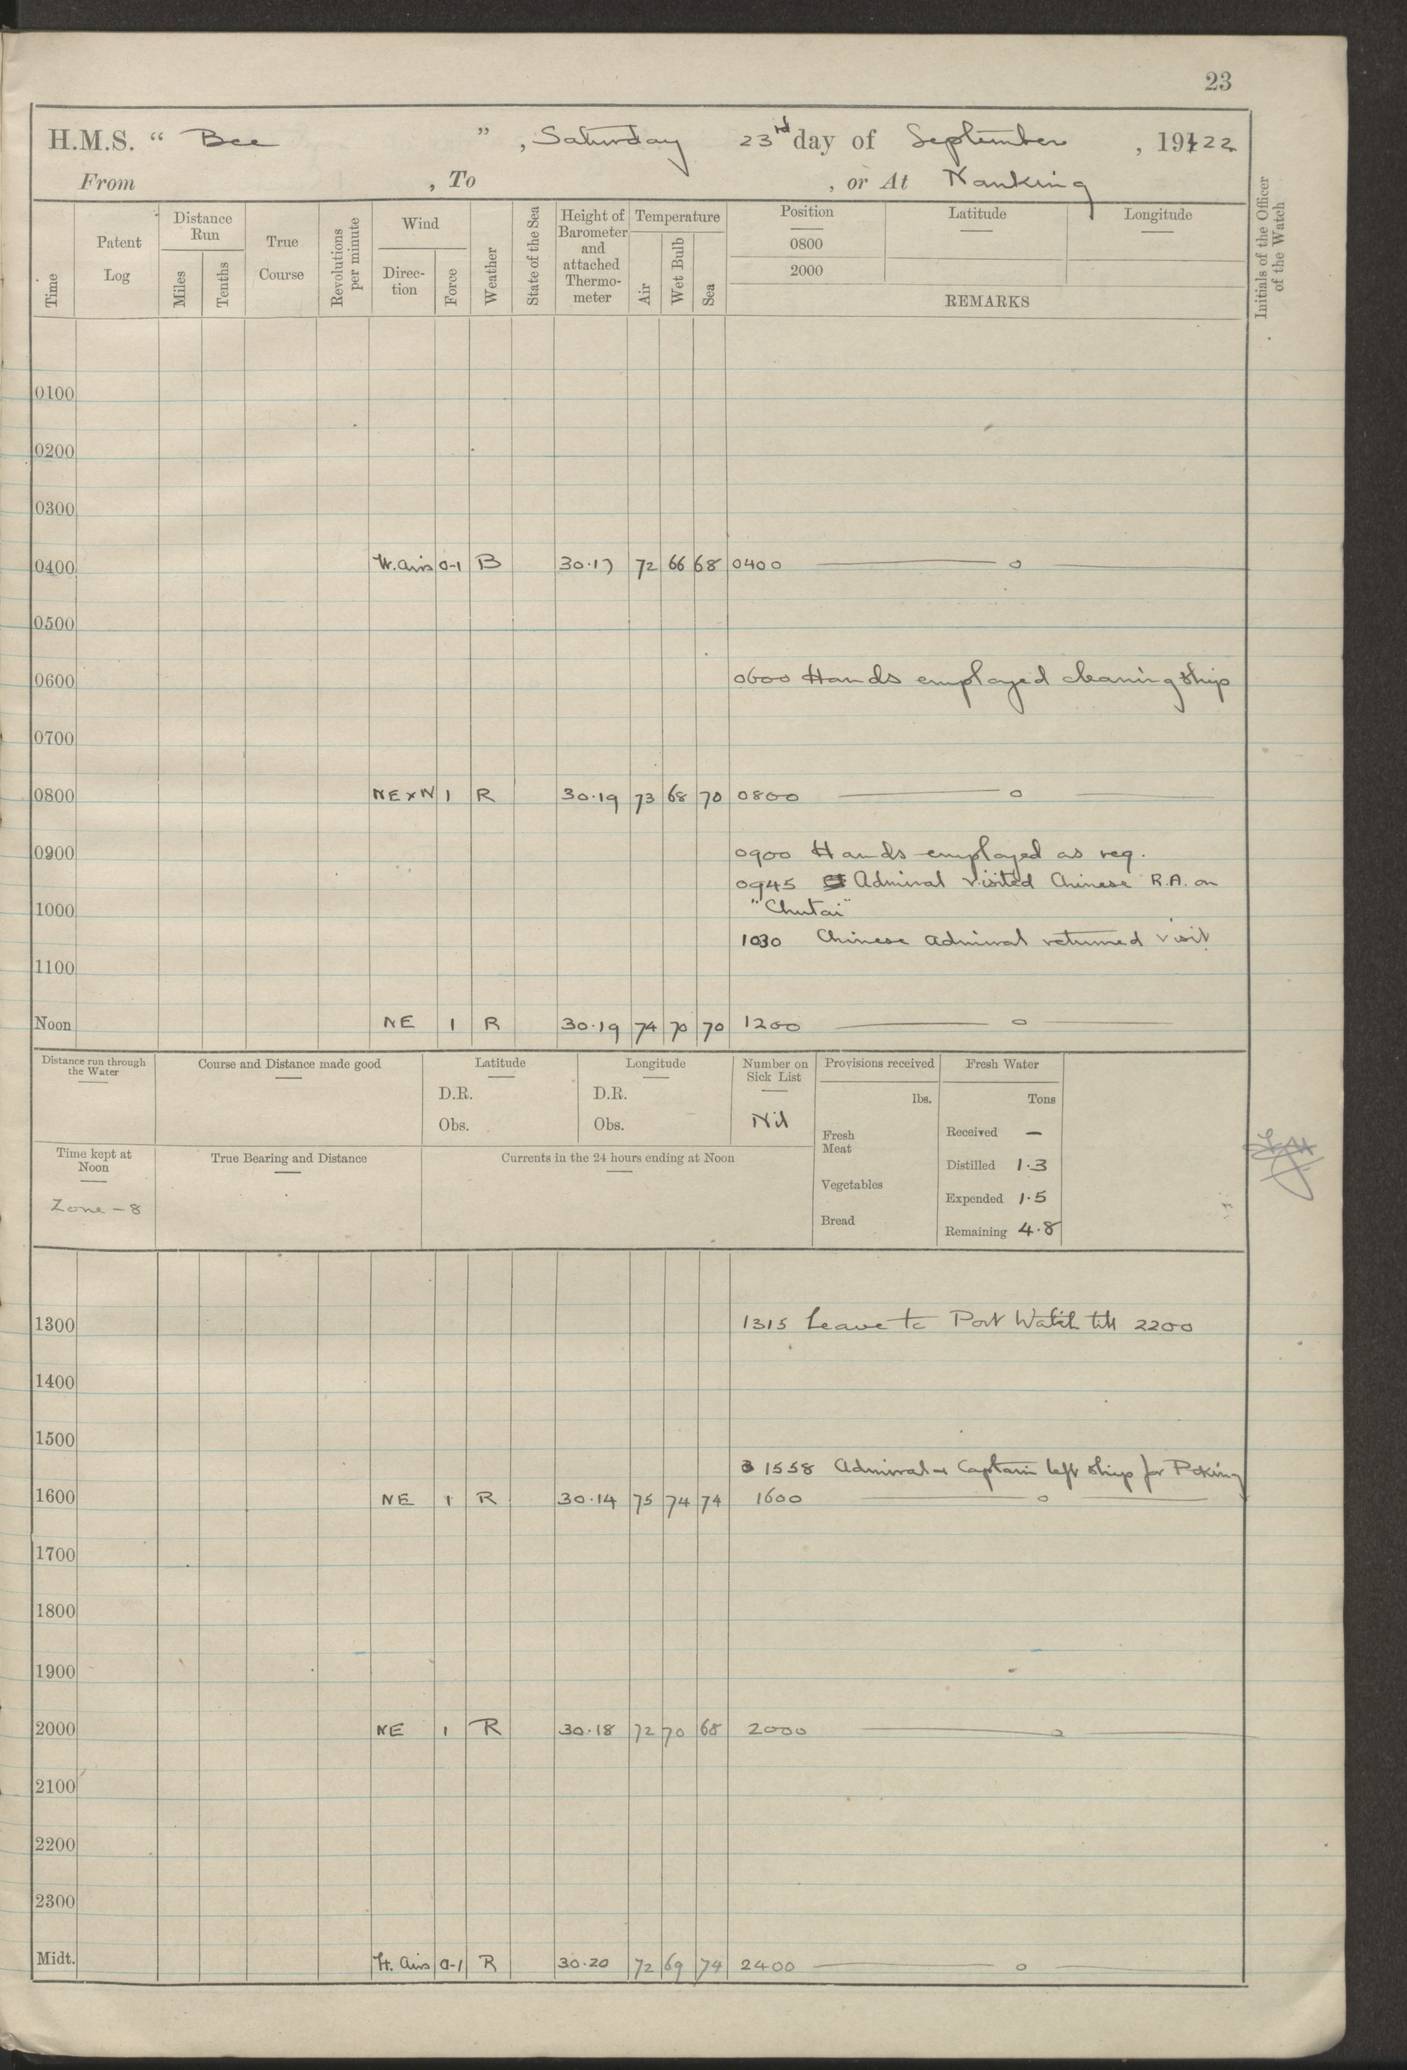 23
H.M.S. " Bee ", Saturday 23rd day of September, 1922
From , To , or At Nanking
Time
Patent Log
Distance Run
Miles
Tenths
True Course
Revolutions per minute
Wind
Direction
Force
Weather
State of the Sea
Height of Barometer and attached Thermometer
Temperature
Air
Wet Bulb
Sea
Position
0800
2000
Latitude
Longitude
REMARKS
Initials of the Officer of the Watch
0100
0200
0300
0400 0-1 B 30.17 72 66 68 0400 — o —
0500
0600 0600 Hands employed cleaning ship
0700
0800 NExN 1 R 30.19 73 68 70 0800 — o —
0900 0900 Hands employed as req.
0945 Admiral visited Chinese R.A. on
1000 "Chutai"
1030 Chinese Admiral returned visit
1100
Noon NE 1 R 30.19 74 70 70 1200 — o —
Distance run through the Water
Course and Distance made good
Latitude
D.R.
Obs.
Longitude
D.R.
Obs.
Number on Sick List
Nil
Provisions received
lbs.
Fresh Meat
Vegetables
Bread
Fresh Water
Tons
Received —
Distilled 1.3
Expended 1.5
Remaining 4.8
Time kept at Noon
Zone -8
True Bearing and Distance
Currents in the 24 hours ending at Noon
1300 1315 Leave to Port Watch till 2200
1400
1500
1558 Admiral & Captain left ship for Peking
1600 NE 1 R 30.14 75 74 74 1600 — o —
1700
1800
1900
2000 NE 1 R 30.18 72 70 68 2000 — o —
2100
2200
2300
Midt. Lt. Airs 0-1 R 30.20 72 69 74 2400 — o —